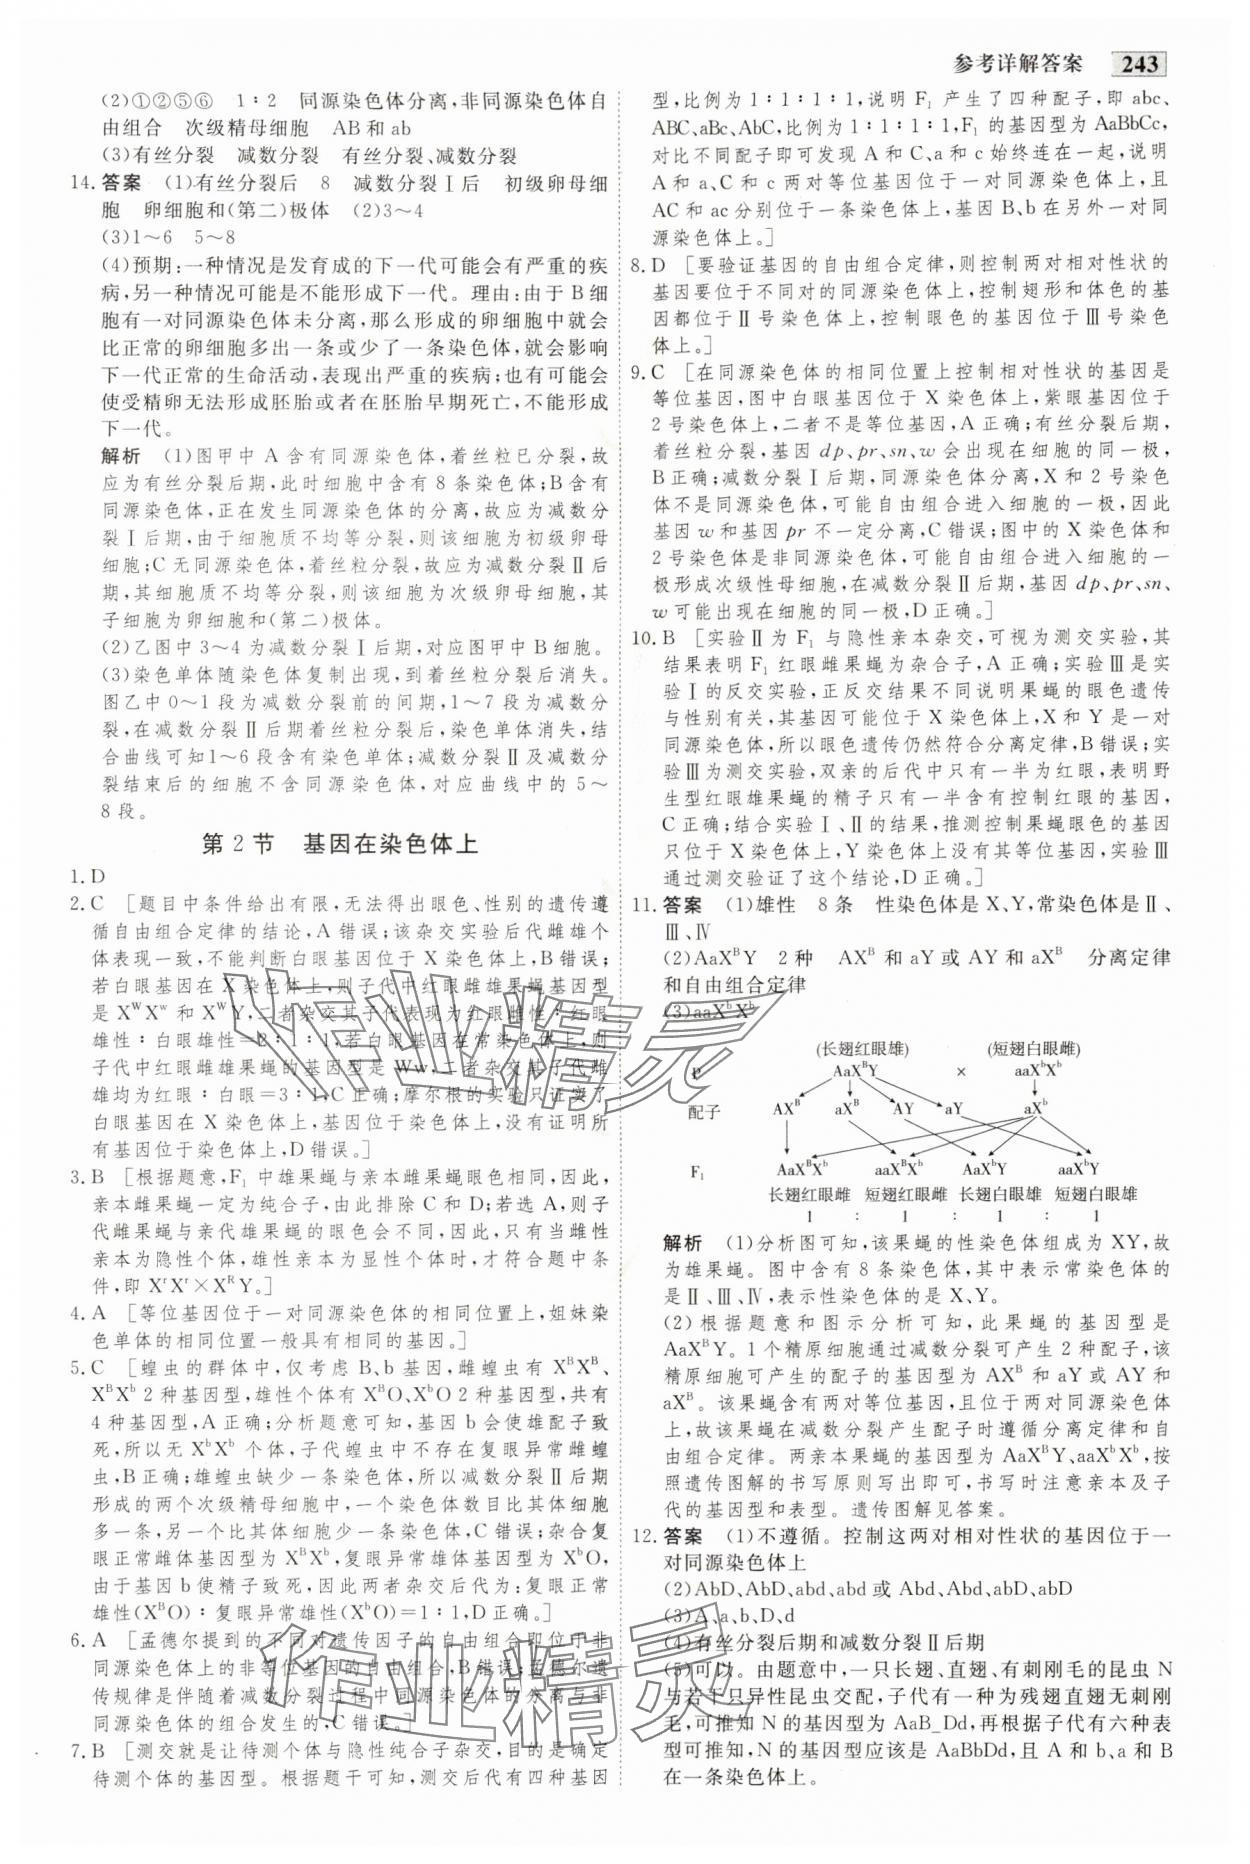 参考详解答案 243
(2)①②⑤⑥　1∶2　同源染色体分离,非同源染色体自
由组合　次级精母细胞　AB和ab
(3)有丝分裂　减数分裂　有丝分裂、减数分裂
14.答案　(1)有丝分裂后　8　减数分裂Ⅰ后　初级卵母细
胞　卵细胞和(第二)极体　(2)3～4
(3)1～6　5～8
(4)预期:一种情况是发育成的下一代可能会有严重的疾
病,另一种情况可能是不能形成下一代。理由:由于B细
胞有一对同源染色体未分离,那么形成的卵细胞中就会
比正常的卵细胞多出一条或少了一条染色体,就会影响
下一代正常的生命活动,表现出严重的疾病;也有可能会
使受精卵无法形成胚胎或者在胚胎早期死亡,不能形成
下一代。
解析　(1)图甲中A含有同源染色体,着丝粒已分裂,故
应为有丝分裂后期,此时细胞中含有8条染色体;B含有
同源染色体,正在发生同源染色体的分离,故应为减数分
裂Ⅰ后期,由于细胞质不均等分裂,则该细胞为初级卵母
细胞;C无同源染色体,着丝粒分裂,故应为减数分裂Ⅱ后
期,其细胞质不均等分裂,则该细胞为次级卵母细胞,其
子细胞为卵细胞和(第二)极体。
(2)乙图中3～4为减数分裂Ⅰ后期,对应图甲中B细胞。
(3)染色单体随染色体复制出现,到着丝粒分裂后消失。
图乙中0～1段为减数分裂前的间期,1～7段为减数分
裂,在减数分裂Ⅱ后期着丝粒分裂后,染色单体消失,结
合曲线可知1～6段含有染色单体;减数分裂Ⅱ及减数分
裂结束后的细胞不含同源染色体,对应曲线中的5～
8段。
第2节　基因在染色体上
1.D
2.C　[题目中条件给出有限,无法得出眼色、性别的遗传遵
循自由组合定律的结论,A错误;该杂交实验后代雌雄个
体表现一致,不能判断白眼基因位于X染色体上,B错误;
若白眼基因在X染色体上,则子代中红眼雌雄果蝇基因型
是XᵂXʷ和XᵂY,二者杂交其子代表现为红眼雌性∶红眼
雄性∶白眼雄性=2∶1∶1,若白眼基因在常染色体上,则
子代中红眼雌雄果蝇的基因型为Ww,二者杂交其子代雌
雄均为红眼∶白眼=3∶1,C正确;摩尔根的实验只证实了
白眼基因在X染色体上,基因位于染色体上,没有证明所
有基因位于染色体上,D错误。]
3.B　[根据题意,F₁中雄果蝇与亲本雌果蝇眼色相同,因此,
亲本雌果蝇一定为纯合子,由此排除C和D;若选A,则子
代雌果蝇与亲代雄果蝇的眼色会不同,因此,只有当雌性
亲本为隐性个体,雄性亲本为显性个体时,才符合题中条
件,即XʳXʳ×XᴿY。]
4.A　[等位基因位于一对同源染色体的相同位置上,姐妹染
色单体的相同位置一般具有相同的基因。]
5.C　[蝗虫的群体中,仅考虑B、b基因,雌蝗虫有XᴮXᴮ、
XᴮXᵇ 2种基因型,雄性个体有XᴮO、XᵇO 2种基因型,共有
4种基因型,A正确;分析题意可知,基因b会使雄配子致
死,所以无XᵇXᵇ个体,子代蝗虫中不存在复眼异常雌蝗
虫,B正确;雄蝗虫缺少一条染色体,所以减数分裂Ⅱ后期
形成的两个次级精母细胞中,一个染色体数目比其体细胞
多一条,另一个比其体细胞少一条染色体,C错误;杂合复
眼正常雌体基因型为XᴮXᵇ,复眼异常雄体基因型为XᵇO,
由于基因b使精子致死,因此两者杂交后代为:复眼正常
雄性(XᴮO)∶复眼异常雄性(XᵇO)=1∶1,D正确。]
6.A　[孟德尔提到的不同对遗传因子的自由组合即位于非
同源染色体上的非等位基因的自由组合,B错误;孟德尔遗
传规律是伴随着减数分裂过程中同源染色体的分离与非
同源染色体的组合发生的,C错误。]
7.B　[测交就是让待测个体与隐性纯合子杂交,目的是确定
待测个体的基因型。根据题干可知,测交后代有四种基因
型,比例为1∶1∶1∶1,说明F₁产生了四种配子,即abc、
ABC、aBc、AbC,比例为1∶1∶1∶1,F₁的基因型为AaBbCc,
对比不同配子即可发现A和C、a和c始终连在一起,说明
A和a、C和c两对等位基因位于一对同源染色体上,且
AC和ac分别位于一条染色体上,基因B、b在另外一对同
源染色体上。]
8.D　[要验证基因的自由组合定律,则控制两对相对性状的
基因要位于不同对的同源染色体上,控制翅形和体色的基
因都位于Ⅱ号染色体上,控制眼色的基因位于Ⅲ号染色
体上。]
9.C　[在同源染色体的相同位置上控制相对性状的基因是
等位基因,图中白眼基因位于X染色体上,紫眼基因位于
2号染色体上,二者不是等位基因,A正确;有丝分裂后期,
着丝粒分裂,基因dp、pr、sn、w会出现在细胞的同一极,
B正确;减数分裂Ⅰ后期,同源染色体分离,X和2号染色
体不是同源染色体,可能自由组合进入细胞的一极,因此
基因w和基因pr不一定分离,C错误;图中的X染色体和
2号染色体是非同源染色体,可能自由组合进入细胞的一
极形成次级性母细胞,在减数分裂Ⅱ后期,基因dp、pr、sn、
w可能出现在细胞的同一极,D正确。]
10.B　[实验Ⅱ为F₁与隐性亲本杂交,可视为测交实验,其
结果表明F₁红眼雌果蝇为杂合子,A正确;实验Ⅲ是实
验Ⅰ的反交实验,正反交结果不同说明果蝇的眼色遗传
与性别有关,其基因可能位于X染色体上,X和Y是一对
同源染色体,所以眼色遗传仍然符合分离定律,B错误;实
验Ⅲ为测交实验,双亲的后代中只有一半为红眼,表明野
生型红眼雄果蝇的精子只有一半含有控制红眼的基因,
C正确;结合实验Ⅰ、Ⅱ的结果,推测控制果蝇眼色的基因
只位于X染色体上,Y染色体上没有其等位基因,实验Ⅲ
通过测交验证了这个结论,D正确。]
11.答案　(1)雄性　8条　性染色体是X、Y,常染色体是Ⅱ、
Ⅲ、Ⅳ
(2)AaXᴮY　2种　AXᴮ和aY或AY和aXᴮ　分离定律
和自由组合定律
(3)aaXᵇXᵇ
(长翅红眼雄)　(短翅白眼雌)
P　AaXᴮY　×　aaXᵇXᵇ
配子　AXᴮ　aXᴮ　AY　aY　aXᵇ
F₁　AaXᴮXᵇ　aaXᴮXᵇ　AaXᵇY　aaXᵇY
长翅红眼雌　短翅红眼雌　长翅白眼雄　短翅白眼雄
1　∶　1　∶　1　∶　1
解析　(1)分析图可知,该果蝇的性染色体组成为XY,故
为雄果蝇。图中含有8条染色体,其中表示常染色体的
是Ⅱ、Ⅲ、Ⅳ,表示性染色体的是X、Y。
(2)根据题意和图示分析可知,此果蝇的基因型是
AaXᴮY。1个精原细胞通过减数分裂可产生2种配子,该
精原细胞可产生的配子的基因型为AXᴮ和aY或AY和
aXᴮ。该果蝇含有两对等位基因,且位于两对同源染色体
上,故该果蝇在减数分裂产生配子时遵循分离定律和自
由组合定律。两亲本果蝇的基因型为AaXᴮY、aaXᵇXᵇ,按
照遗传图解的书写原则写出即可,书写时注意亲本及子
代的基因型和表型。遗传图解见答案。
12.答案　(1)不遵循。控制这两对相对性状的基因位于一
对同源染色体上
(2)AbD、AbD、abd、abd或Abd、Abd、abD、abD
(3)A、a、b、D、d
(4)有丝分裂后期和减数分裂Ⅱ后期
(5)可以。由题意中,一只长翅、直翅、有刺刚毛的昆虫N
与若干只异性昆虫交配,子代有一种为残翅直翅无刺刚
毛,可推知N的基因型为AaB_Dd,再根据子代有六种表
型可推知,N的基因型应该是AaBbDd,且A和b、a和B
在一条染色体上。
作业精灵
作业精灵